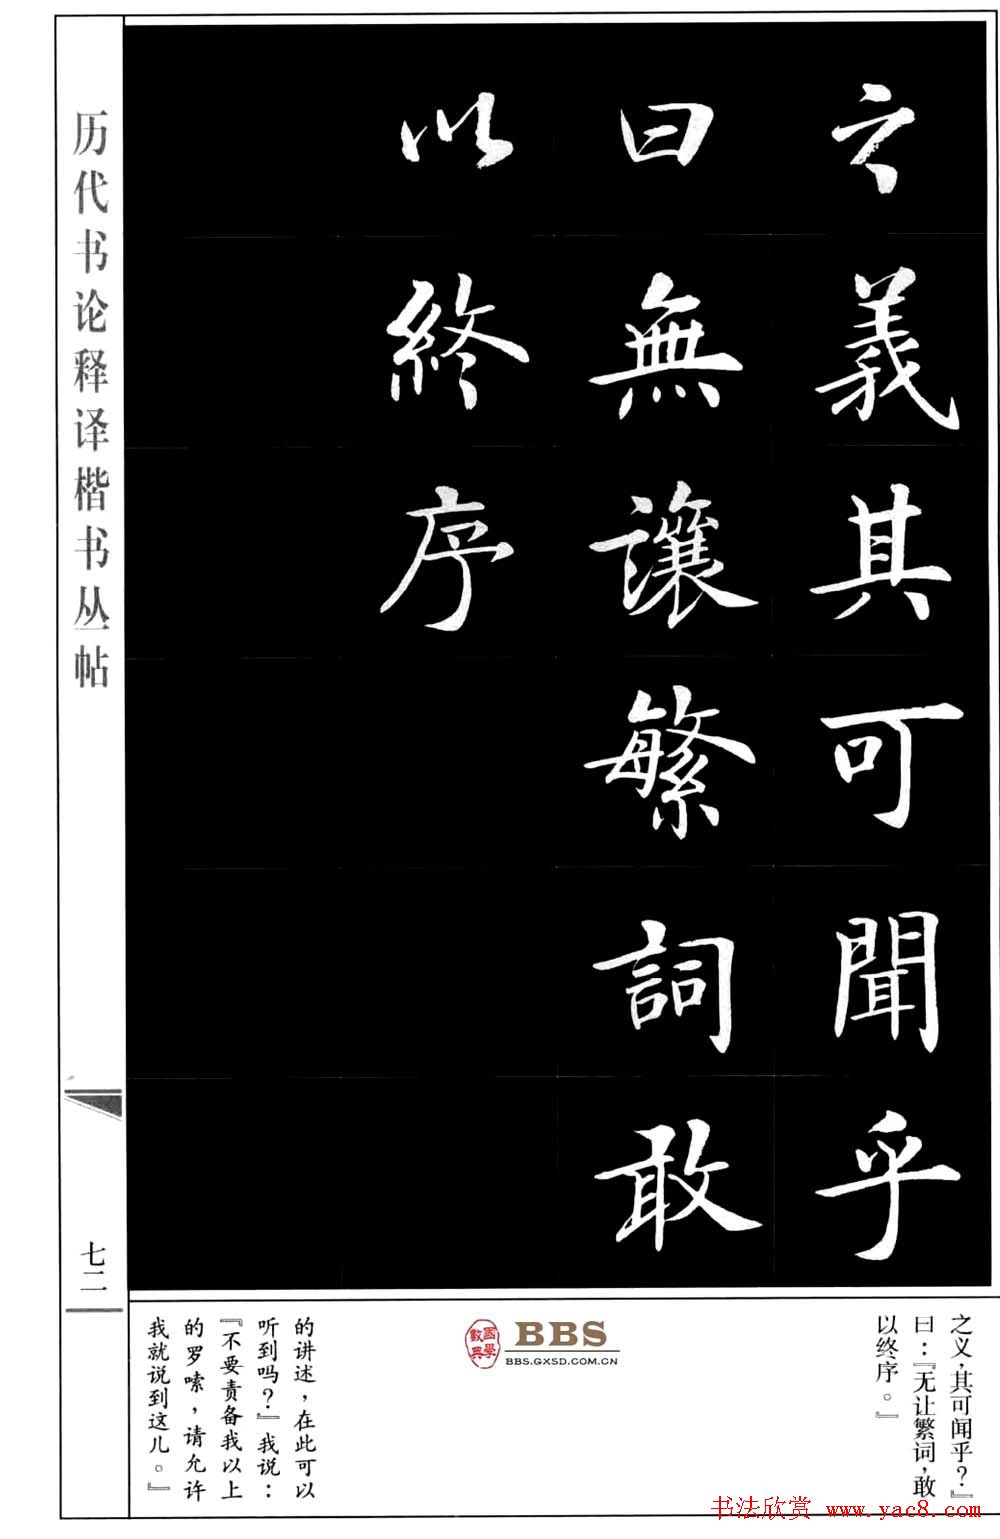 之義其可聞乎
曰無讓繁詞敢
以終序
历代书论释译楷书丛帖
七二
之义，其可闻乎？』
曰：『无让繁词，敢
以终序。』
國學數典
BBS
BBS.GXSD.COM.CN
的讲述，在此可以
听到吗？』我说：
『不要责备我以上
的罗嗦，请允许
我就说到这儿。』
书法欣赏 www.yac8.com